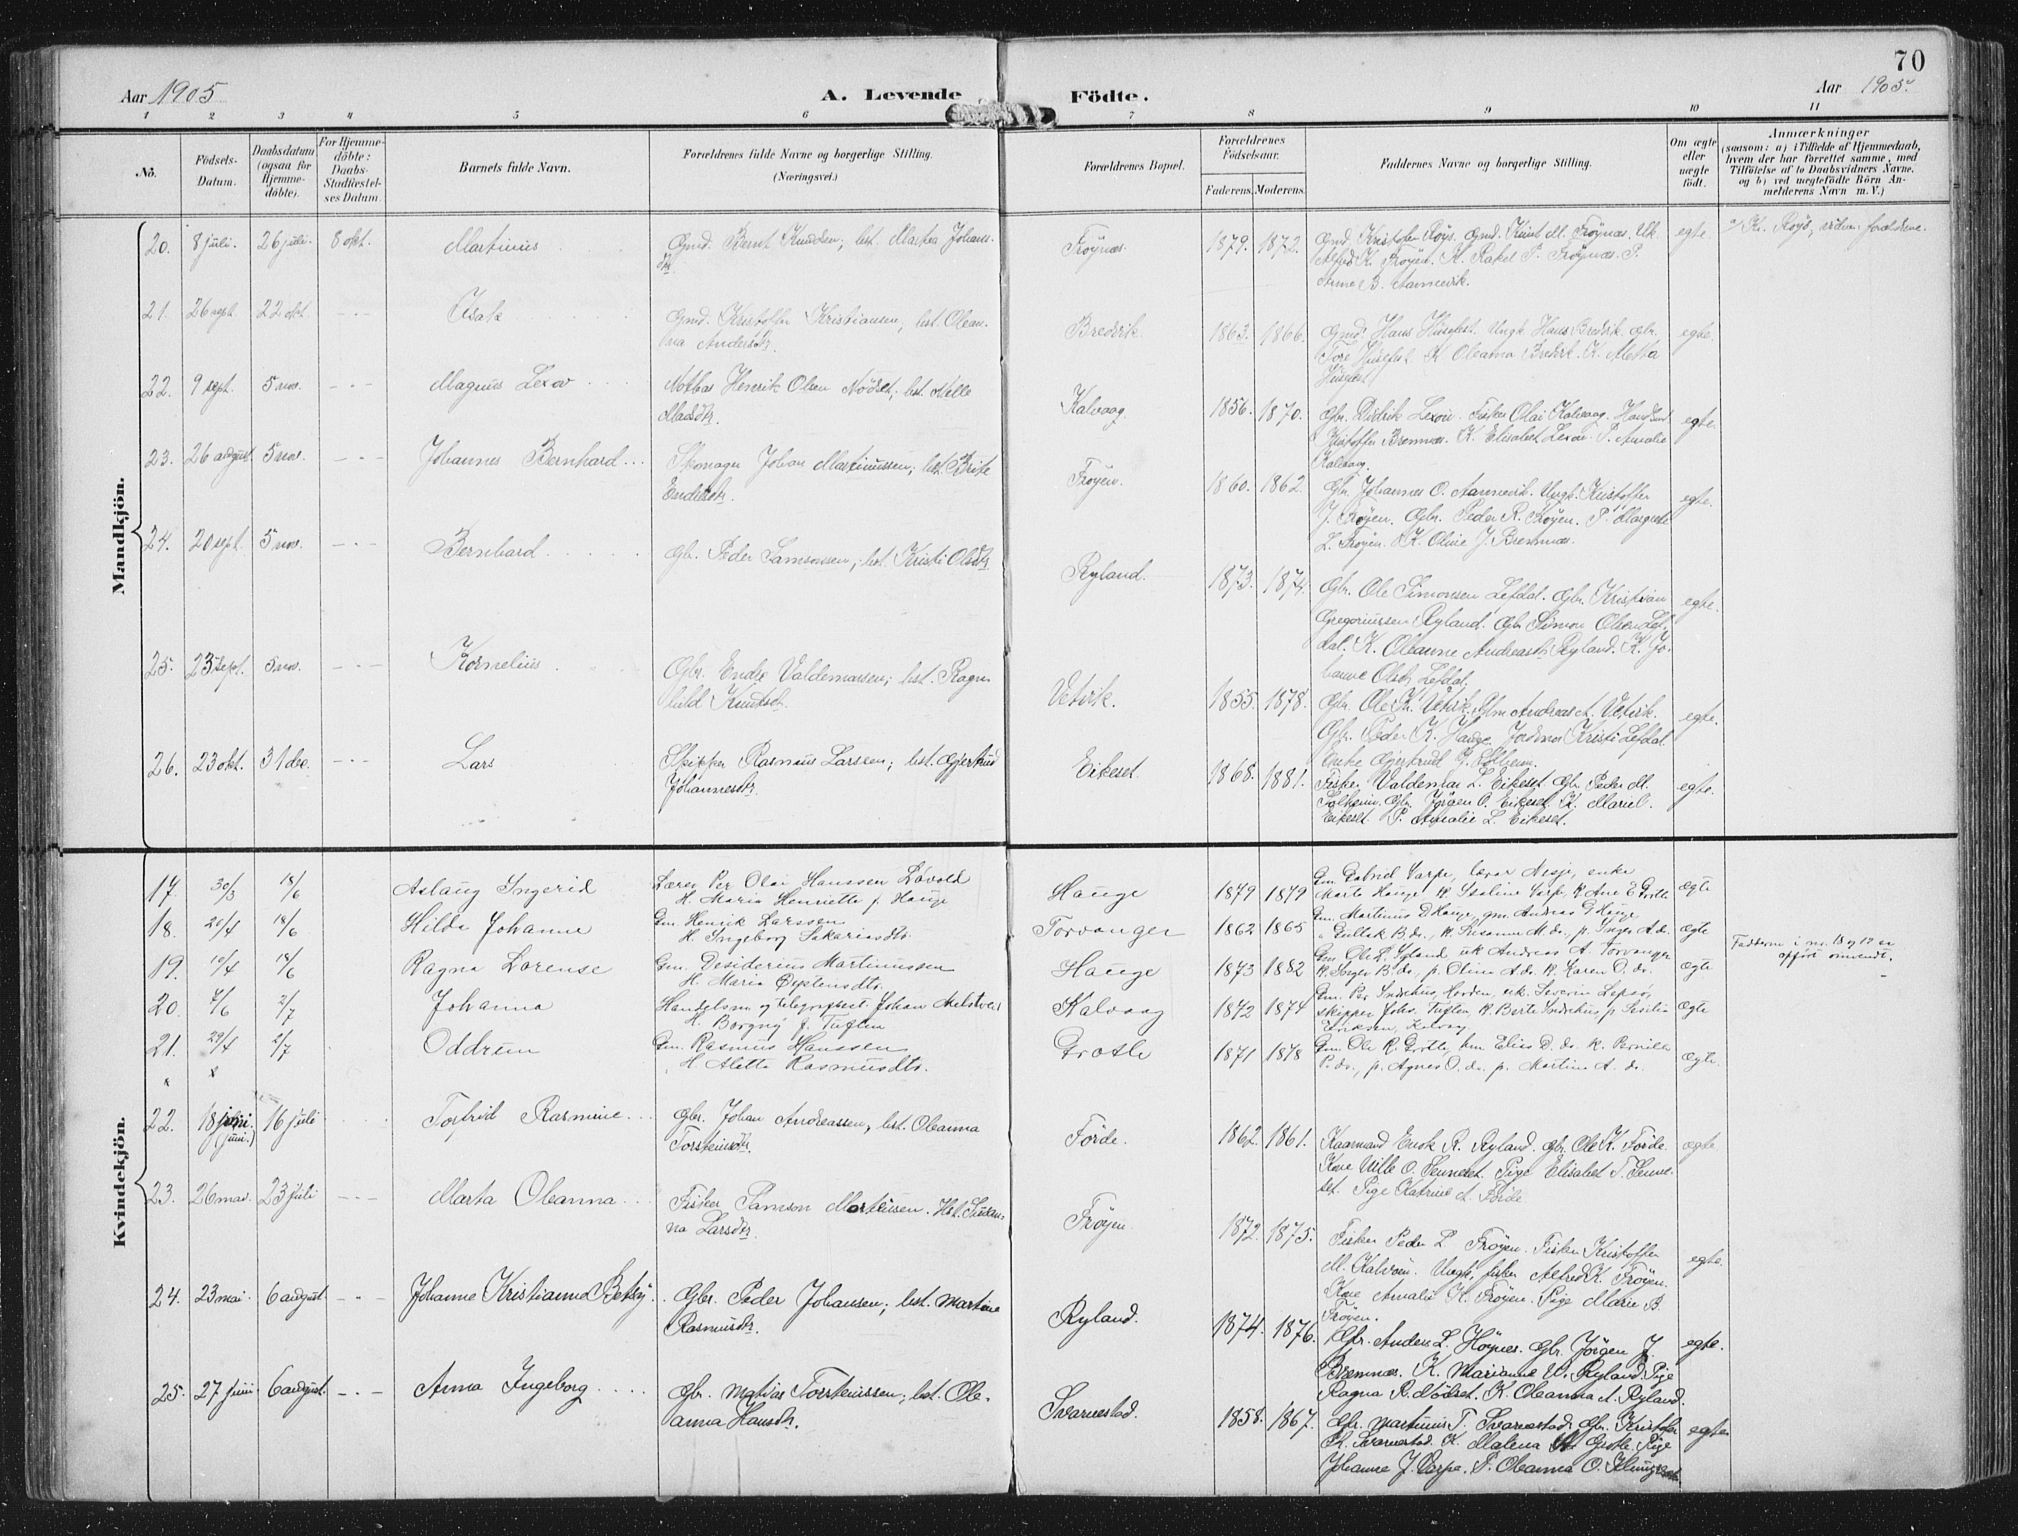 70
Aar 1905
A. Levende Födte.
Aar 1905
1 2 3 4 5 6 7 8 9 10 11
No.
Födsels-Datum.
Daabsdatum (ogsaa for Hjemme-döbte).
For Hjemme-döbte: Daabs-Stadfæstel-ses Datum.
Barnets fulde Navn.
Forældrenes fulde Navne og borgerlige Stilling.
(Næringsvei.)
Forældrenes Bopæl.
Forældrenes Födselsaar.
Faderens. Moderens.
Faddernes Navne og borgerlige Stilling.
Om ægte eller uægte födt.
Anmærkninger
(saasom: a) i Tilfælde af Hjemmedaab, hvem der har forrettet samme, med Tilföielse af to Daabsvidners Navne, og b) ved uægtefödte Börn An-melderens Navn m. V.)
Mandkjön.
20. 8 juli. 26 juli. 8 okt. Martinus
Gmd. Bernt Knudsen; hst. Martea Johans-
dtr.
Frøynæs. 1879. 1872.
Gmd. Kristofer Røys. Gmd. Knut M. Frøynæs. Uk.
Alfred K. Frøyen. K. Rakel P. Frøynæs. P.
Anne B. Aannevik.
egte.
21. 26 sept. 22 okt. - - - Isak
Gmd. Kristoffer Kristiansen; hst. Olean-
na Andersdtr.
Bredvik. 1863. 1866.
Gmd. Hans Husefest. Ungk. Hans Bredvik. Gbr.
Tore Husefest. K. Oleanna Bredvik. K. Metta
Husefest
egte.
22. 9 sept. 5 nov. - - - Magnus Lexov
Notbas Henrik Olsen Nødset; hst. Malle
Madsdtr.
Kalvaag. 1856. 1870.
Gbr. Didrik Lexov. Fisker Olai Kalvaag. Handelsm.
Kristoffer Bremnæs. K. Elisabet Lexov. P. Amalie
Kalvaag.
egte.
23. 26 august 5 nov. - - - Johannes Bernhard
Skomager Johan Martinussen; hst. Brite
Endresdtr.
Frøyen. 1860. 1862.
Gbr. Johannes O. Aannevik. Ungk. Kristoffer
J. Frøyen. Gbr. Peder R. Frøyen. P. Margrete
L. Frøyen. K. Oline J. Bremnæs.
egte.
24. 20 sept. 5 nov. - - - Bernhard
Gbr. Peder Samsonsen; hst. Kristi Olsdtr
Ryland. 1873. 1874.
Gbr. Ole Simonsen Lefdal. Gbr. Kristian
Gregoriussen Ryland. Gbr Simon Olsen Lef-
dal. K. Oleanne Andreasdtr Ryland. K. Jo-
hanne Olsdtr Lefdal.
egte.
25. 23 sept. 5 nov. - - - Kornelius
Gbr. Endre Valdemarsen; hst. Ragn-
hild Knutsdt.
Vetvik. 1855. 1878.
Gbr. Ole K. Vetvik. Gbr Andreas A. Vetvik.
Gbr. Peder K. Hauge. Jordmor Kristi Lefdal.
Enke Gjertrud P. Solheim.
egte.
26. 23 okt. 31 dec. - - - Lars
Skipper Rasmus Larssen; hst. Gjertrud
Johannesdtr.
Eikeset. 1868. 1881.
Fisker Valdemar L. Eikeset. Gbr. Peder M.
Solheim. Gbr. Jørgen O. Eikeset. K. Marie L.
Eikeset. P. Amalie L. Eikeset.
egte.
Kvindekjön.
17. 30/3 18/6 Aslaug Ingerid
Lærer Per Olai Hanssen Løvold
H. Maria Henriette f. Hauge
Hauge 1879 1879
Gm. Gabriel Varpe, lærer Nesje, enke
Marte Hauge, k. Isaline Varpe, k. Ane E Grotle
Ægte
18. 20/4 18/6 Hilda Johanne
Gm. Henrik Larssen
H. Ingeborg Sakariasdtr.
Torvanger 1862 1865
Gm. Martinus D Hauge, gm. Andreas G Hauge
" Gullek B. ds., k. Susanne M. ds., p. Inger A. ds.
ægte
Fadderne i no. 18 og 19 er
opført omvendt.
19. 10/4 18/6 Ragna Lorense
Gm. Desiderius Martinussen
H. Maria Østensdtr.
Hauge 1873 1882
Gm Ole L. Iyland uk Andreas A Torvanger
k. Inger B. ds., p. Olina A. ds. k. Karen O. ds.
Ægte
20. 7/6 2/7 Johanna
Handelsm og telegrafbest. Johan
H. Borgny f. Tuften
Kalvaag 1872 1874
Gm. Per Indrehus, Horden, uk. Severin Lepsø,
skipper Johs. Tuften, k. Berte Indrehus p. Sesilie
Eriksen, Kalvaag
Ægte
21. 29/4 2/7 Oddrun
Gm. Rasmus Hanssen
H. Aletta Rasmusdtr.
Grotle 1871 1878
Gm. Ole R. Grotle, hm Elias D. ds. k. Pernille
P. ds., p. Agnes O. ds. p. Martine A. ds.
Ægte.
22. 18 juni. (juni.) 16 juli - - - Torfrid Rasmine
Gbr. Johan Andreassen; hst. Oleanna
Torsteinsdtr.
Førde. 1862. 1861.
Kaarmand Enok R. Ryland. Gbr. Ole K. Førde.
Kone Nille O. Sunnset. Pige Elisabet T. Sunn-
set. Pige Katrine A. Førde
ægte
23. 26 mai. 23 juli - - - Marta Oleanna
Fisker Samson Morteinsen. Hst. Susan-
na Larsdtr.
Frøyen. 1872. 1875.
Fisker Peder L. Frøyen. Fisker Kristoffer
M. Kalvøen. Ungk. fisker Alfred K. Frøyen.
Kone Amalie H. Frøyen. Pige Marie B.
Frøyen.
egte.
24. 23 mai. 6 august - - - Johanne Kristianna Betsy.
Gbr. Peder Johansen; hst. Martine
Rasmusdtr.
Ryland. 1874. 1876.
Gbr. Anders L. Høynes. Gbr. Jørgen J.
Bremnæs. K. Marianne W. Ryland. Pige
Ragna R. Nødset. K. Oleanna A. Ryland.
egte.
25. 27 juni 6 august. - - - Anna Ingeborg
Gbr. Matias Torsteinssen; hst. Ole-
anna Hansdtr.
Svarvestad. 1858. 1867.
Gbr. Martinus T. Svarvestad. Gbr. Kristofer
Svarvestad. K. Malena Grotle. Pige
Johanne J. Varpe. P. Oleanna O.
egte.